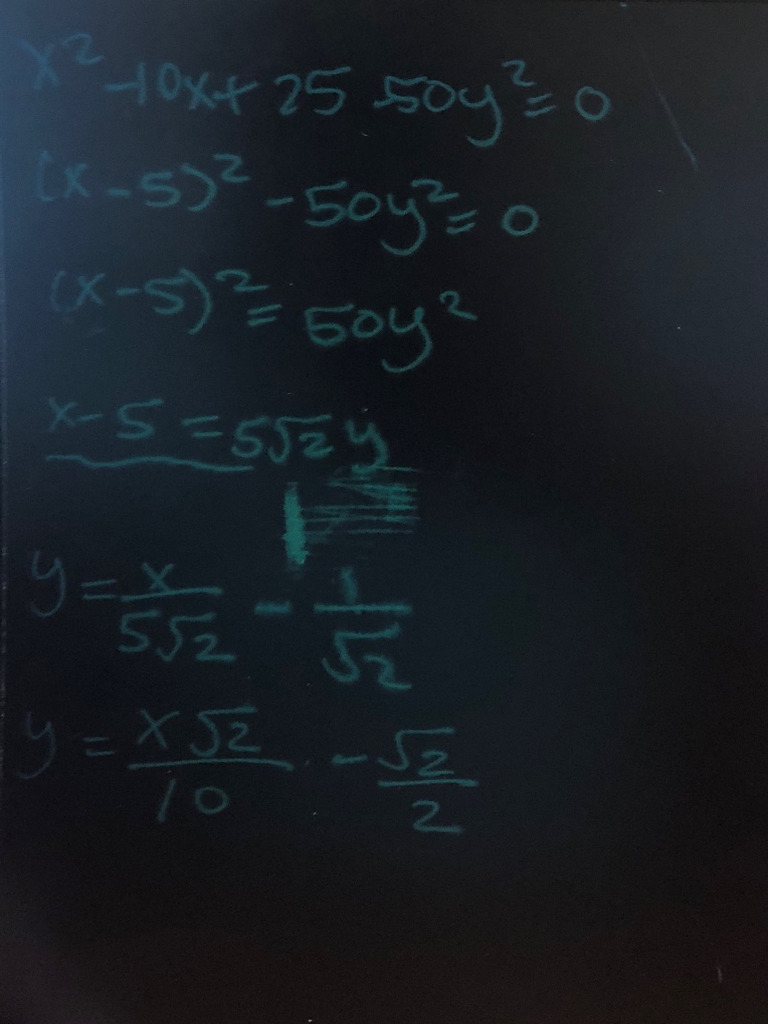 x² -10x+ 25 -50y² = 0
(x-5)² -50y² = 0
(x-5)² = 50y²
x-5 = 5√2 y
y = x/5√2 - 1/√2
y = x√2/10 - √2/2